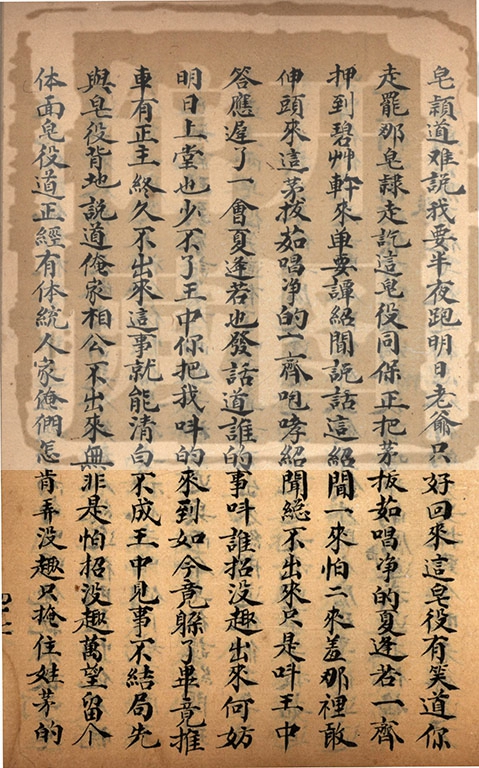 皂頴道难說我要半夜跑明日老爺只好回來這皂役有笑道你
走罷那皂隸走訖這皂役同保正把茅拔茹唱净的夏逢若一齊
押到碧艸軒來单要譚紹聞説話這紹聞一來怕二來羞那裡敢
伸頭來這茅拔茹唱净的一齊咆哮紹聞總不出來只是呌王中
答應遲了一會夏逢若也發話道誰的事呌誰招没趣出來何妨
明日上堂也少不了王中你把我呌的來到如今竟躲了畢竟推
車有正主終久不出來這事就能清白不成王中見事不結局先
與皂役背地説道俺家相公不出來無非是怕招没趣萬望留个
体面皂役道正經有体統人家俺們怎肯弄没趣只掩住姓茅的